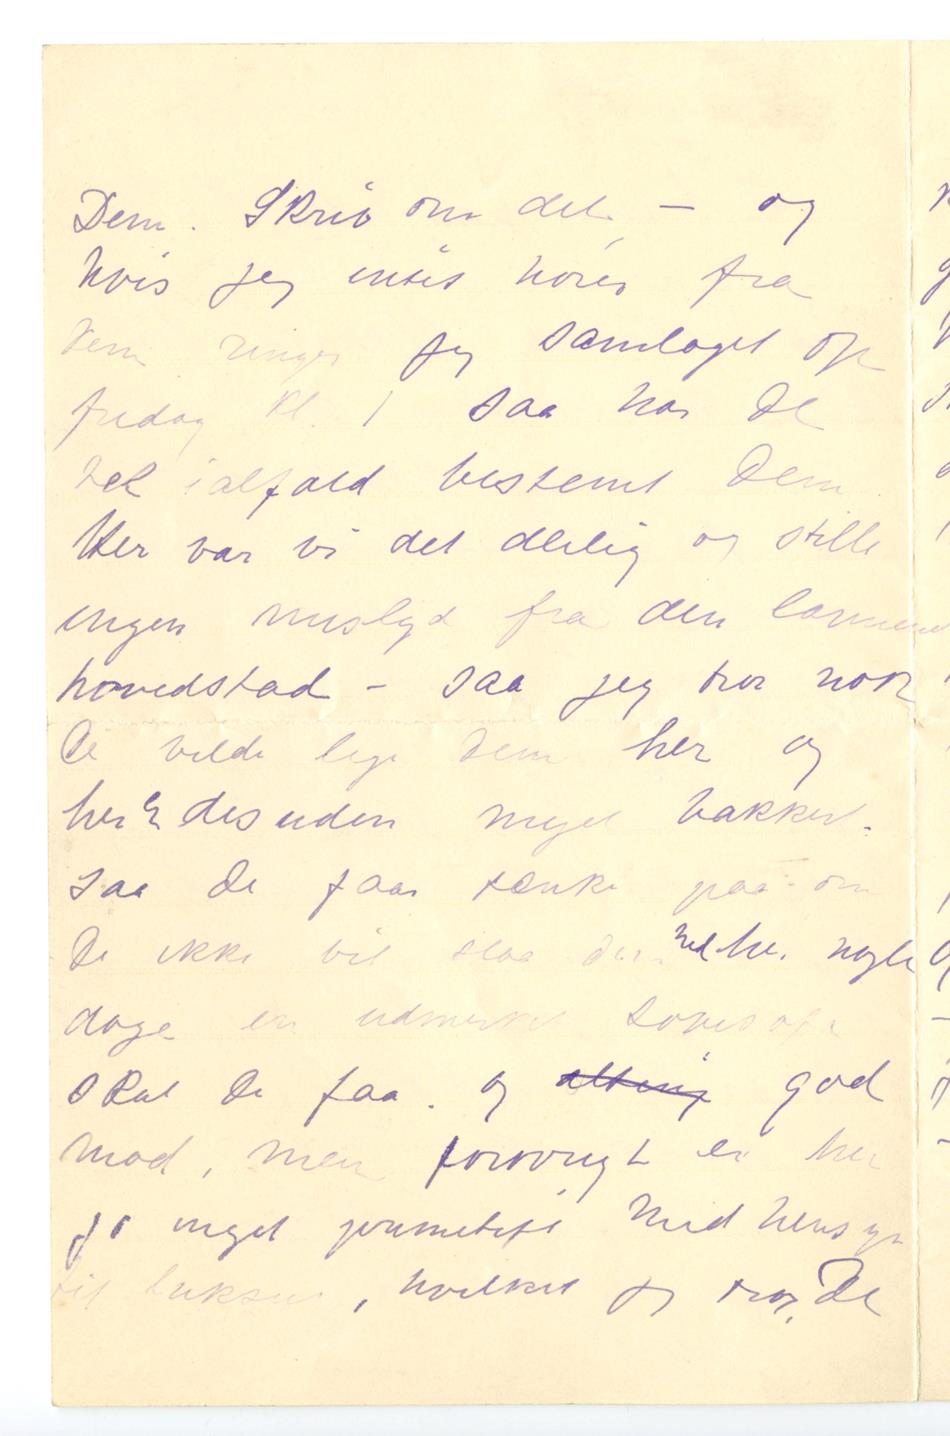 Dem. Skriv om det. — og
hvis jeg intet hører fra
Dem ringer jeg Samlaget op
fredag kl. 1 saa har De
vel ialfald bestemt Dem
Her var vi det deilig og stille
ingen mislyd fra den larmende
hovedstad – saa jeg tror nok
De vilde lige Dem her og
her er desuden meget vakkert.
saa De faar tænke paa om
De ikke vil slaa Dem ned her nogle
dage en udmerket sovesofa
skal De faa. og alting god
mad, men forøvrigt er her
jo meget primitivt med hensyn
til luksus, hvilket jeg tror, De